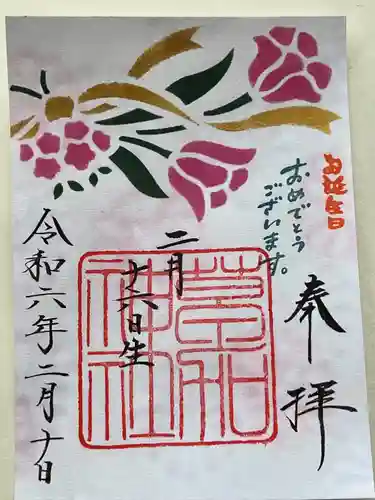 奉拝
お誕生日
おめでとう
ございます。
二月
十六日生
神社
令和六年二月十日